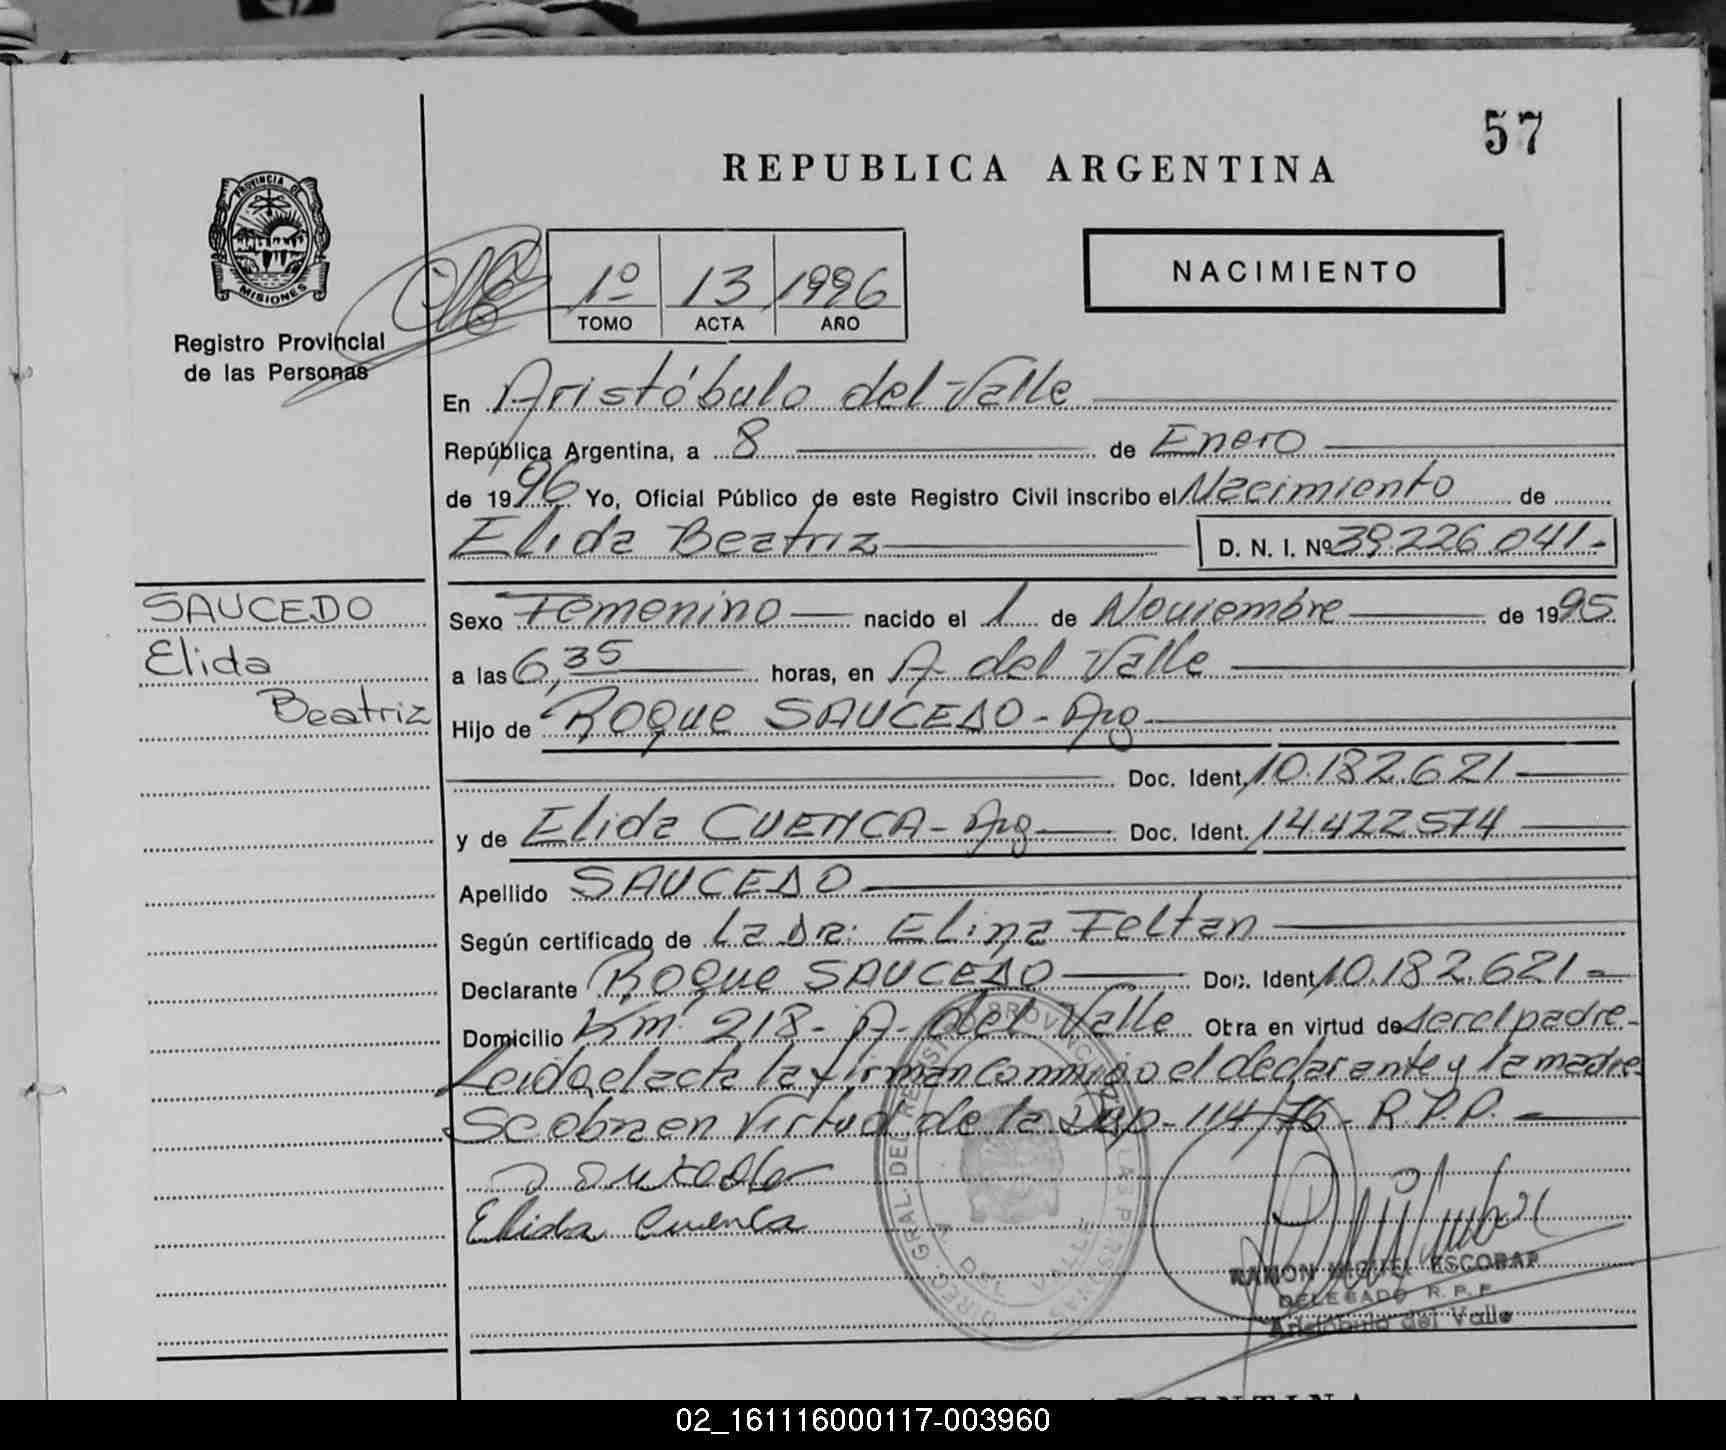 57
REPUBLICA ARGENTINA
PROVINCIA DE
MISIONES
Registro Provincial
de las Personas
1º 13 1996
TOMO ACTA AÑO
NACIMIENTO
En Aristóbulo del Valle
República Argentina, a 8 de Enero
de 1996 Yo, Oficial Público de este Registro Civil inscribo el Nacimiento de
Elida Beatriz D. N. I. Nº 39.226.041.-
SAUCEDO
Elida
Beatriz
Sexo Femenino nacido el 1 de Noviembre de 1995
a las 6,35 horas, en A. del Valle
Hijo de Roque SAUCEDO - Arg
Doc. Ident. 10.182.621
y de Elida CUENCA - Arg Doc. Ident. 14.422.574
Apellido SAUCEDO
Según certificado de la Dra. Elina Feltan
Declarante Roque SAUCEDO Doc. Ident. 10.182.621 -
Domicilio Km 218 - A. del Valle Otra en virtud de ser el padre -
Leida el acta la firman conmigo el declarante y la madre
Se obra en virtud de la Disp - 114/76 - R.P.P. -
Elida Cuenca
RAMON MIGUEL ESCOBAR
DELEGADO R. P. P.
Aristóbulo del Valle
DIREC. GRAL. DEL REGISTRO PROVINCIAL DE LAS PERSONAS
DEL VALLE
ARGENTINA
02_161116000117-003960